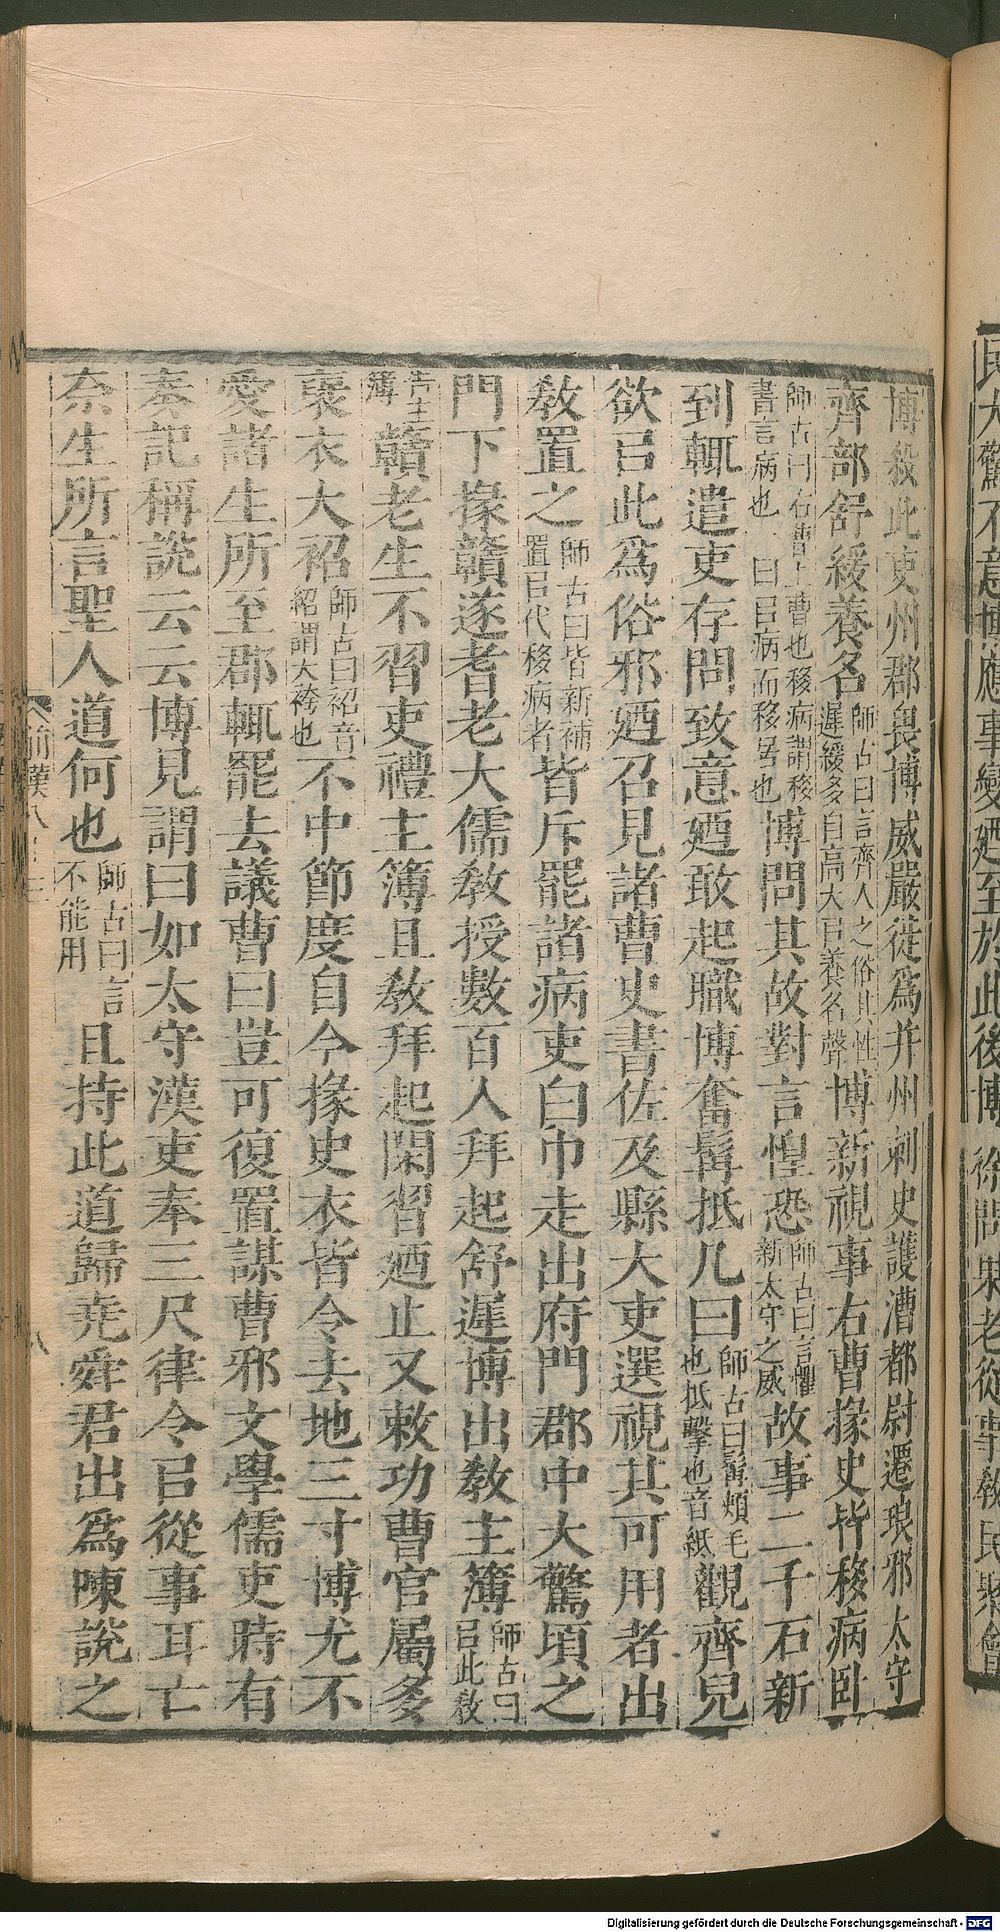 民大驚不意博應事變廼至於此後博徐問果老從事敎民聚會
博殺此吏州郡畏博威嚴徙爲并州刺史護漕都尉遷琅邪太守
齊部舒緩養名師古曰言齊人之俗其性遲緩多自高大㠯養名聲博新視事右曹掾史皆移病臥
師古曰右曹上曹也移病謂移書言病也一曰㠯病而移居也博問其故對言惶恐師古曰言懼新太守之威故事二千石新
到輒遣吏存問致意廼敢起職博奮髥抵几曰師古曰髥頰毛也抵擊也音紙觀齊兒
欲㠯此爲俗邪廼召見諸曹史書佐及縣大吏選視其可用者出
敎置之師古曰皆新補置㠯代移病者皆斥罷諸病吏白巾走出府門郡中大驚頃之
門下掾贛遂耆老大儒敎授數百人拜起舒遲博出敎主簿師古曰㠯此敎
告主簿贛老生不習吏禮主簿且敎拜起閑習廼止又敕功曹官屬多
襃衣大袑師古曰袑音紹謂大袴也不中節度自今掾史衣皆令去地三寸博尤不
愛諸生所至郡輒罷去議曹曰豈可復置謀曹邪文學儒吏時有
奏記稱說云云博見謂曰如太守漢吏奉三尺律令㠯從事耳亡
奈生所言聖人道何也師古曰言不能用且持此道歸堯舜君出爲陳說之
前漢八十三
八
Digitalisierung gefördert durch die Deutsche Forschungsgemeinschaft - DFG